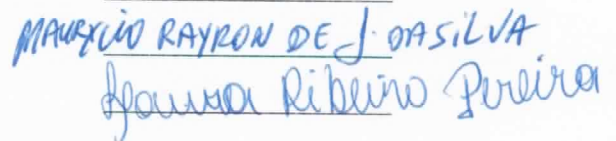 MAURYCIO RAYRON DE J. DA SILVA
Ribeiro Pereira